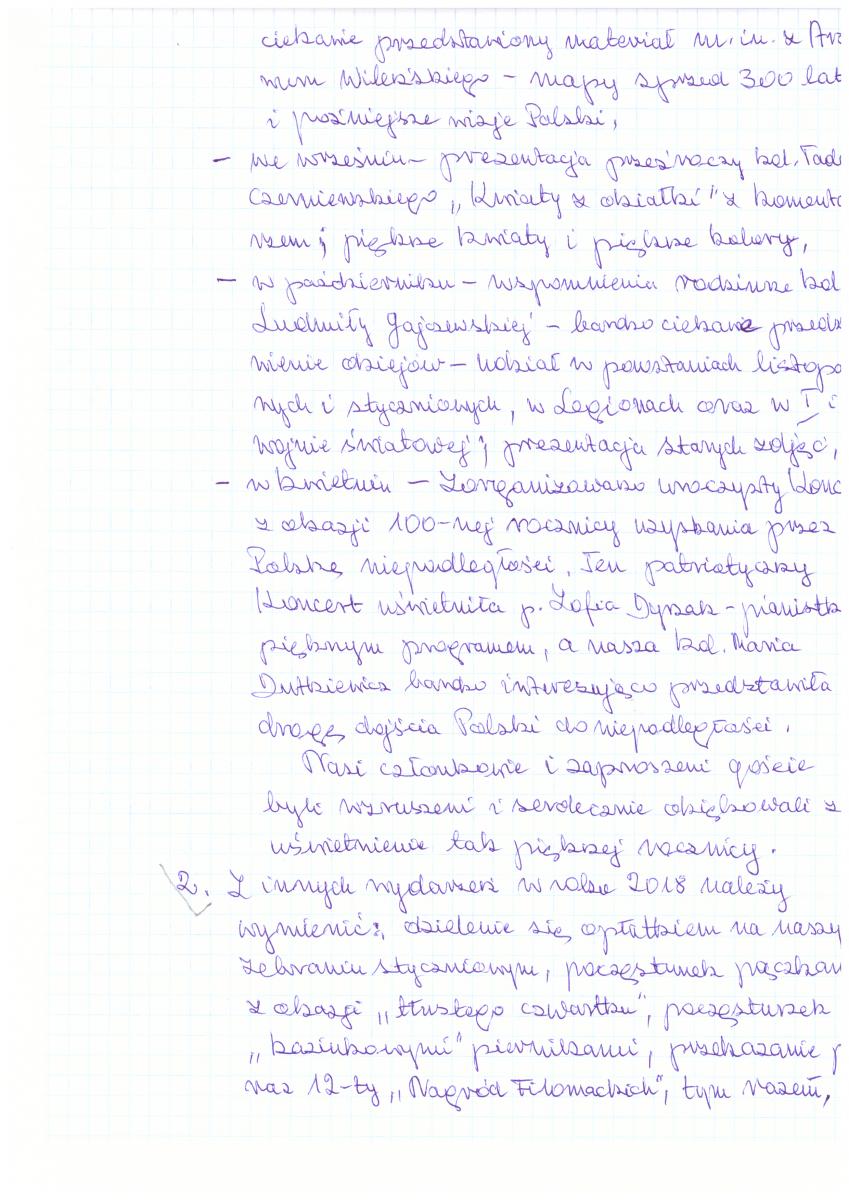 ciekawie przedstawiony materiał m.in. z Arz
mem Wileńskiego – mapy sprzed 300 lat
i późniejsze wizje Polski,
– we wrześniu – prezentacja przeźroczy kol. Tade
Czerniewskiego „Kwiaty z działki" z komenta
rzem; piękne kwiaty i piękne kolory,
– w październiku – wspomnienia rodzinne kol
Ludmiły Gajzewskiej – bardzo ciekawe przedst
wienie dziejów – udział w powstaniach listopa
nych i styczniowych, w Legionach oraz w I i
wojnie światowej; prezentacja starych zdjęć,
– w kwietniu – Zorganizowano uroczysty konc
z okazji 100-nej rocznicy uzyskania przez
Polskę niepodległości. Ten patriotyczny
Koncert uświetniła p. Zofia Dynak – pianistk
pięknym programem, a nasza kol. Maria
Dutkiewicz bardzo interesująco przedstawiła
drogę dojścia Polski do niepodległości.
Nasi członkowie i zaproszeni goście
byli wzruszeni i serdecznie dziękowali z
uświetnienie tak pięknej rocznicy.
2. Z innych wydarzeń w roku 2018 należy
wymienić: dzielenie się opłatkiem na naszy
zebraniu styczniowym, poczęstunek pączkam
z okazji „tłustego czwartku", poczęstunek
„kaziukowymi" piernikami, przekazanie p
raz 12-ty „Nagród Filomackich", tym razem,